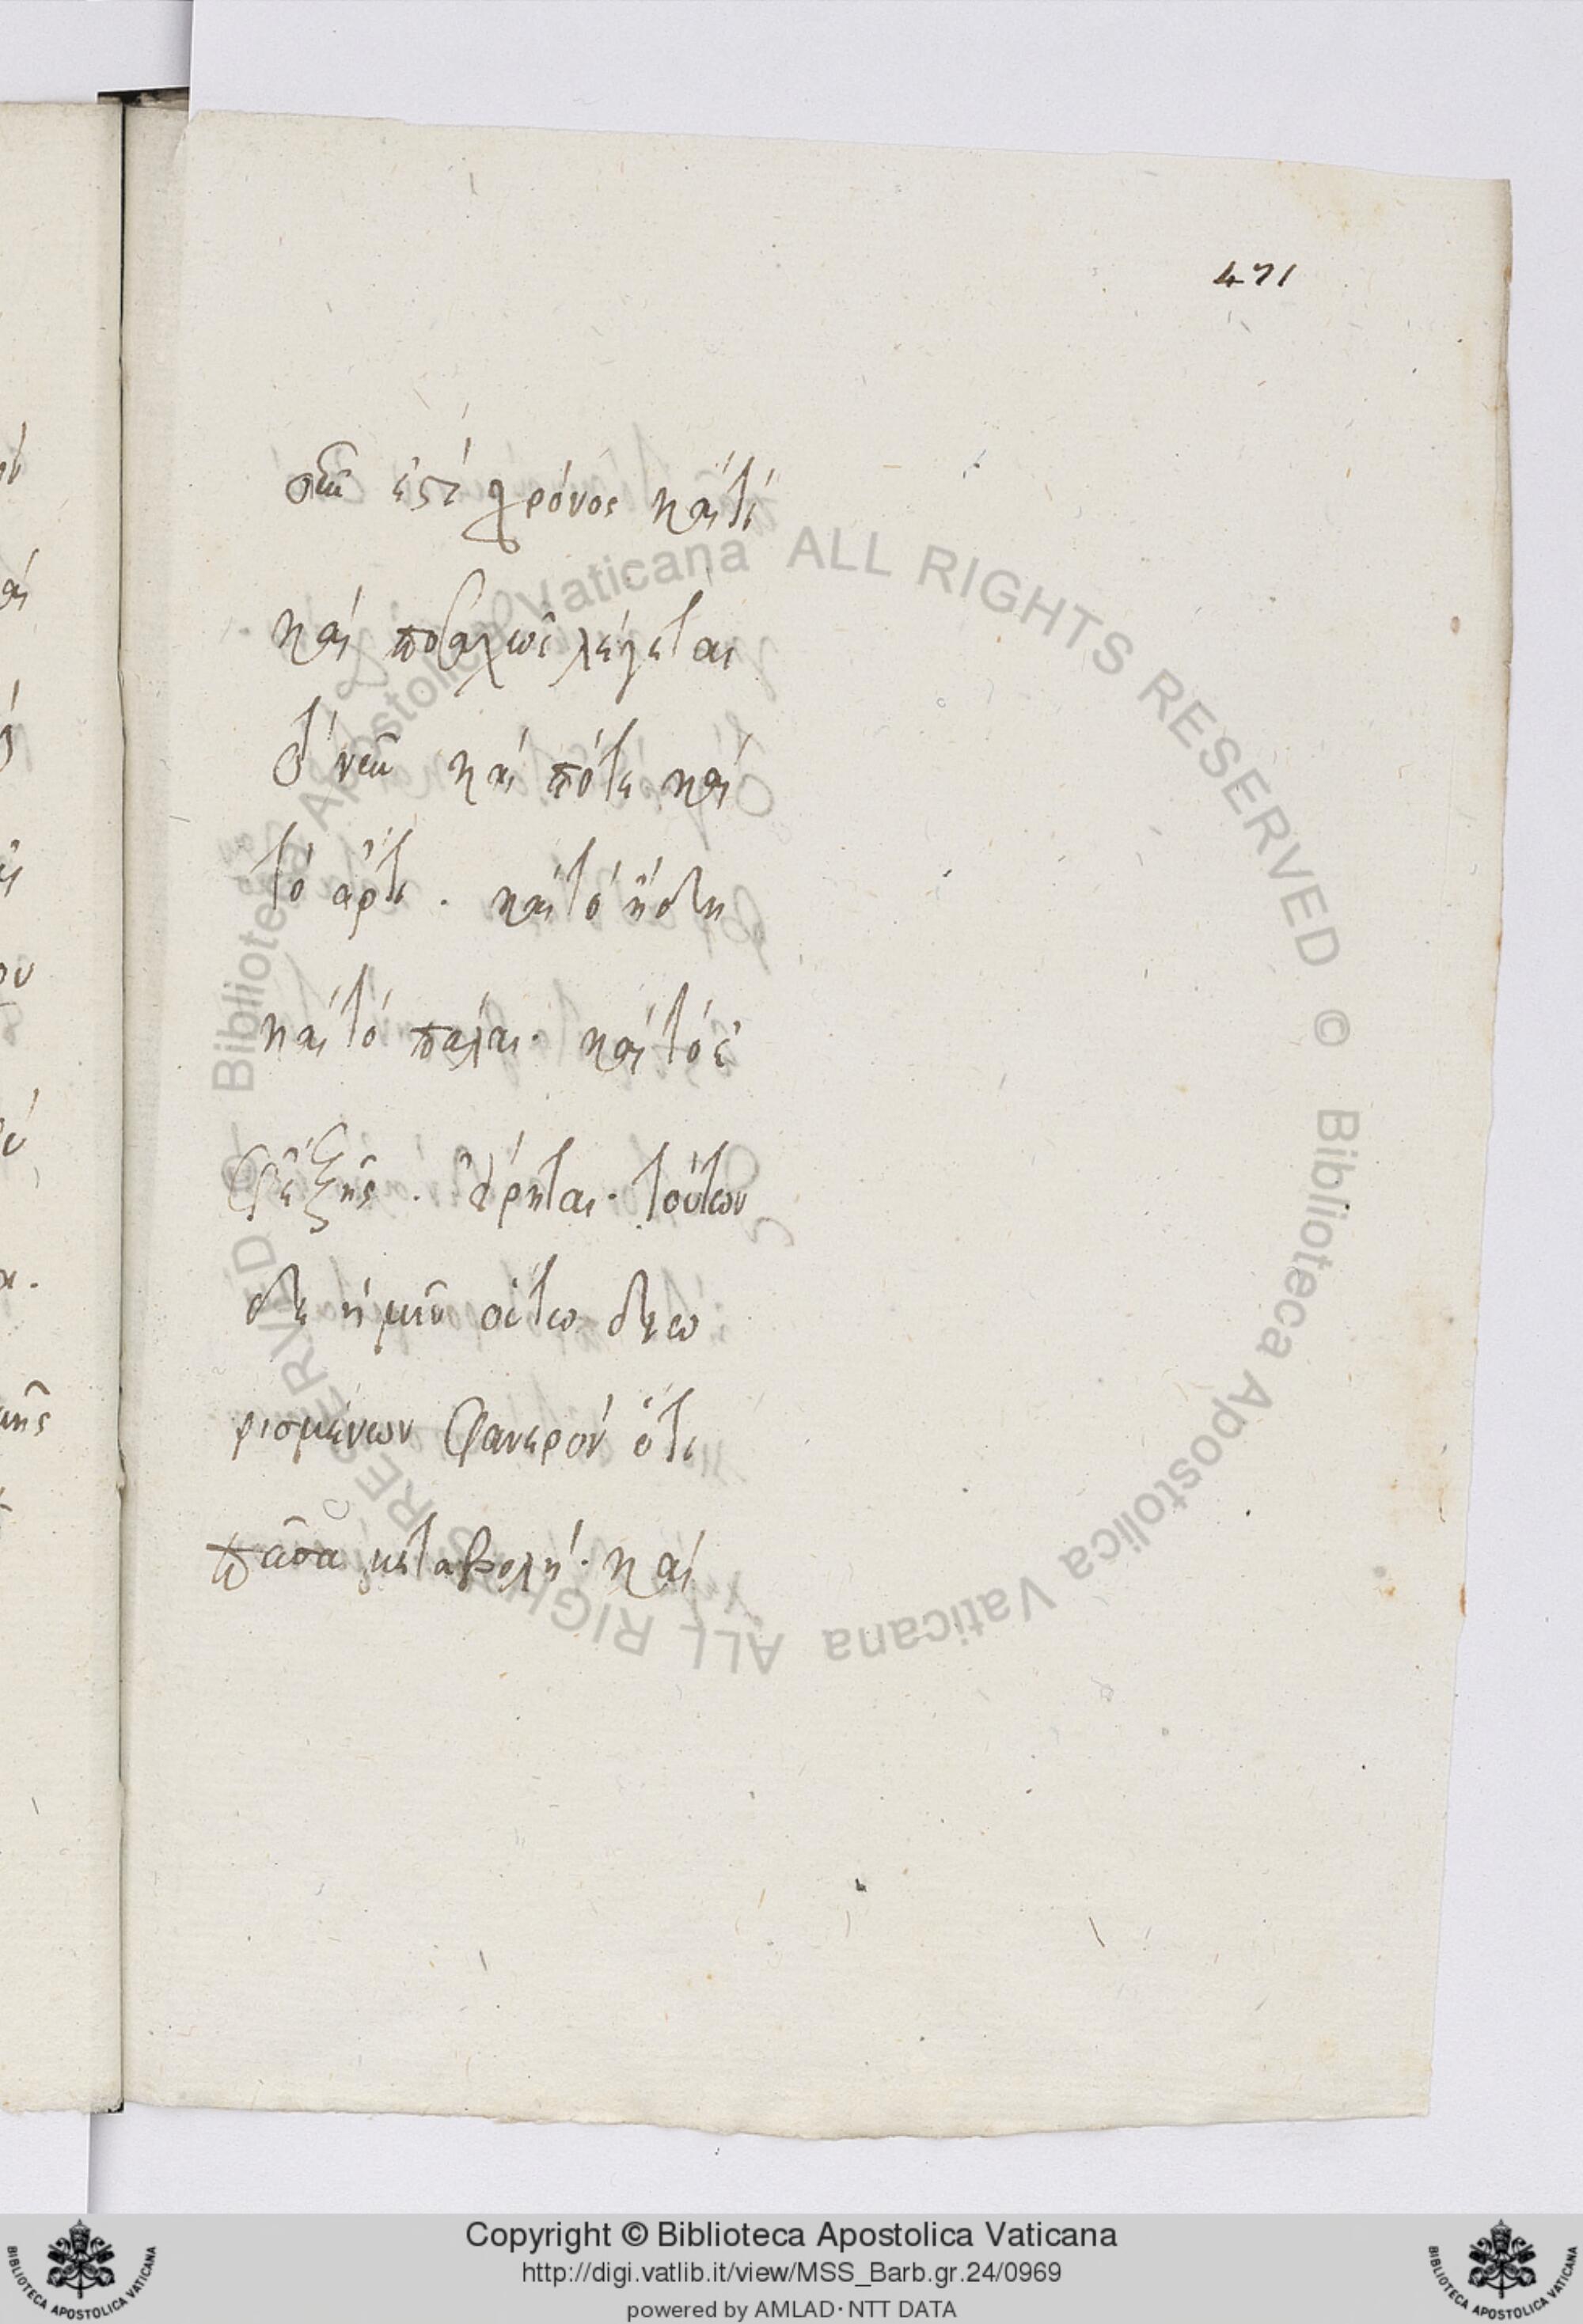 471
οὖν ἐστί χρόνος καί τί
καί ποσαχῶς λέγεται
τό νῦν καί πότε καί
τό ἄρτι . καί τό ἤδη
καί τό πάλαι · καί τό ἐ
ξέφνης . εἴρηται · τούτων
δε ἡμῖν οὕτω διω
ρισμένων φανερόν ὅτι
πᾶσα μεταβολή · καί
Biblioteca Apostolica Vaticana ALL RIGHTS RESERVED © Biblioteca Apostolica Vaticana ALL RIGHTS RESERVED ©
Copyright © Biblioteca Apostolica Vaticana
http://digi.vatlib.it/view/MSS_Barb.gr.24/0969
powered by AMLAD·NTT DATA
BIBLIOTECA APOSTOLICA VATICANA
BIBLIOTECA APOSTOLICA VATICANA